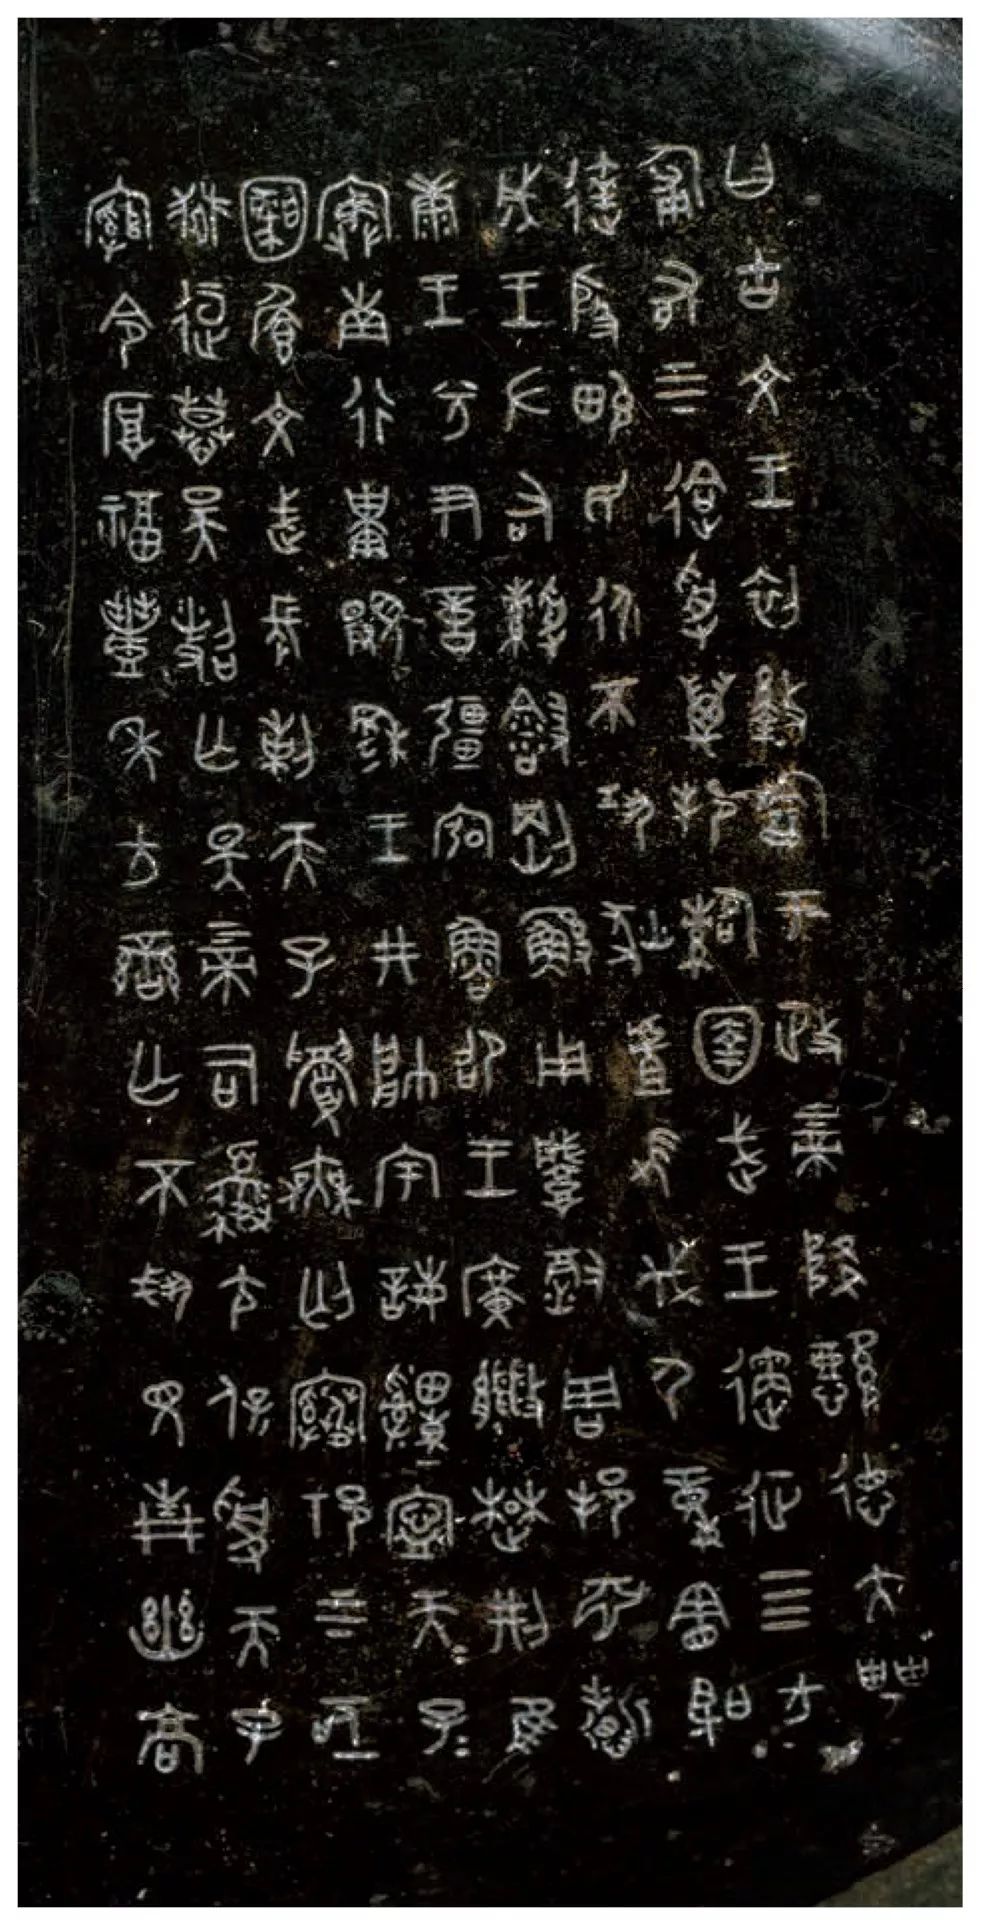 曰古文王初盭龢于政上帝降懿德大甹
匍有上下迨受萬邦𩁹圉武王遹征四方
達殷畯民永不巩狄虘𢼸伐尸童憲聖
成王左右綬𣪘剛鯀用肇徹周邦淵哲
康王兮尹億疆宖魯卲王廣𢾭楚荊隹
寏南行祗𫧹穆王井帥宇誨申寧天子天子
圝𠩺文武長剌天子𧷽無匄𩁹祁上下亟
𤞷逗慕昊照亡斁上帝司夒尢保受天子
綰令厚福豐年方蠻亡不𢦚見青幽高